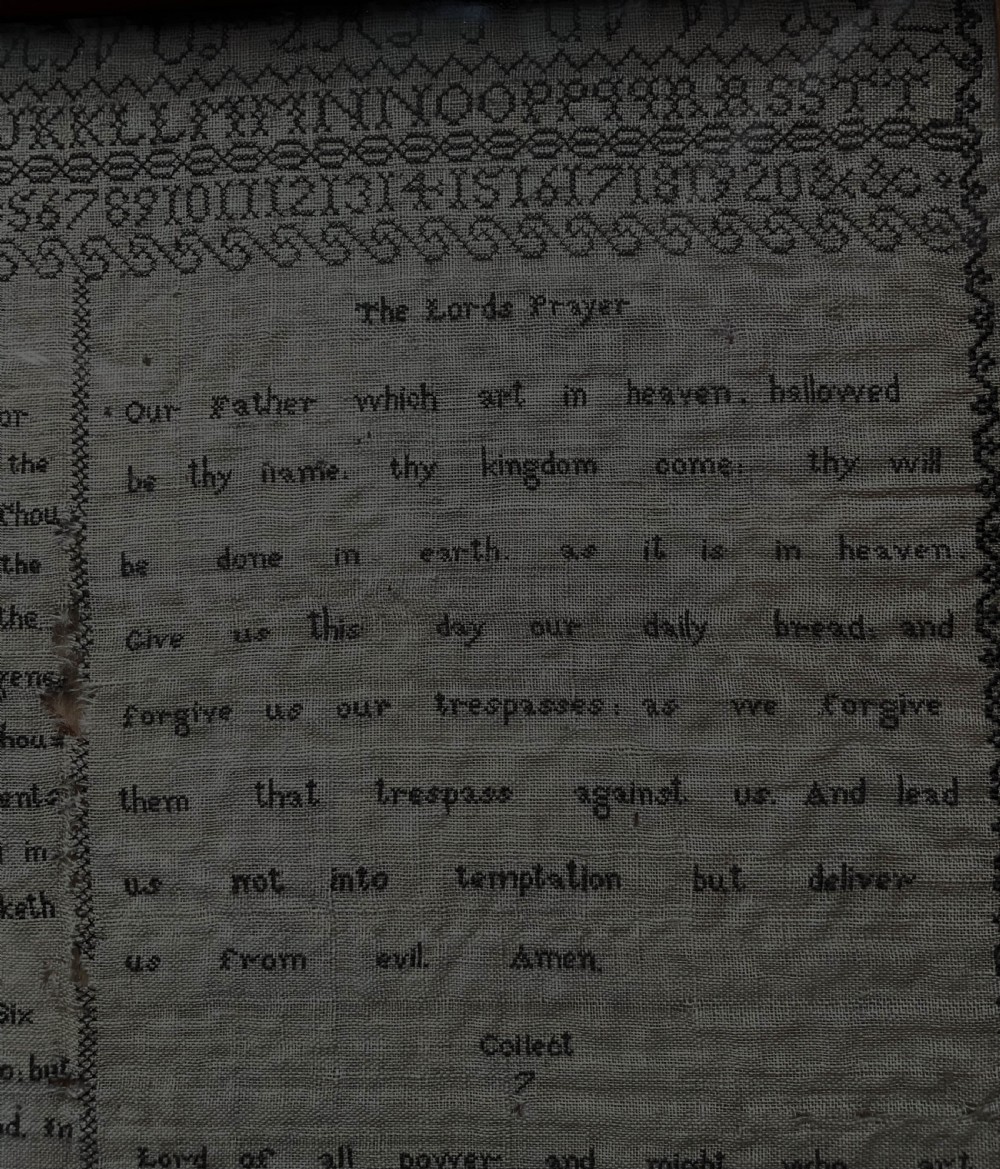 JKKLLMMNNOOPPQQRRSSTT
567891011121314151617181920&&
The Lords Prayer
Our Father which art in heaven. hallowed
be thy name. thy kingdom come: thy will
be done in earth. as it is in heaven.
Give us this day our daily bread: and
forgive us our trespasses: as we forgive
them that trespass against us. And lead
us not into temptation but deliver
us from evil. Amen.
Collect
7
Lord of all power and might who art
or
the
thou
the
the
hou
ents
in
keth
Six
o. but
d. In